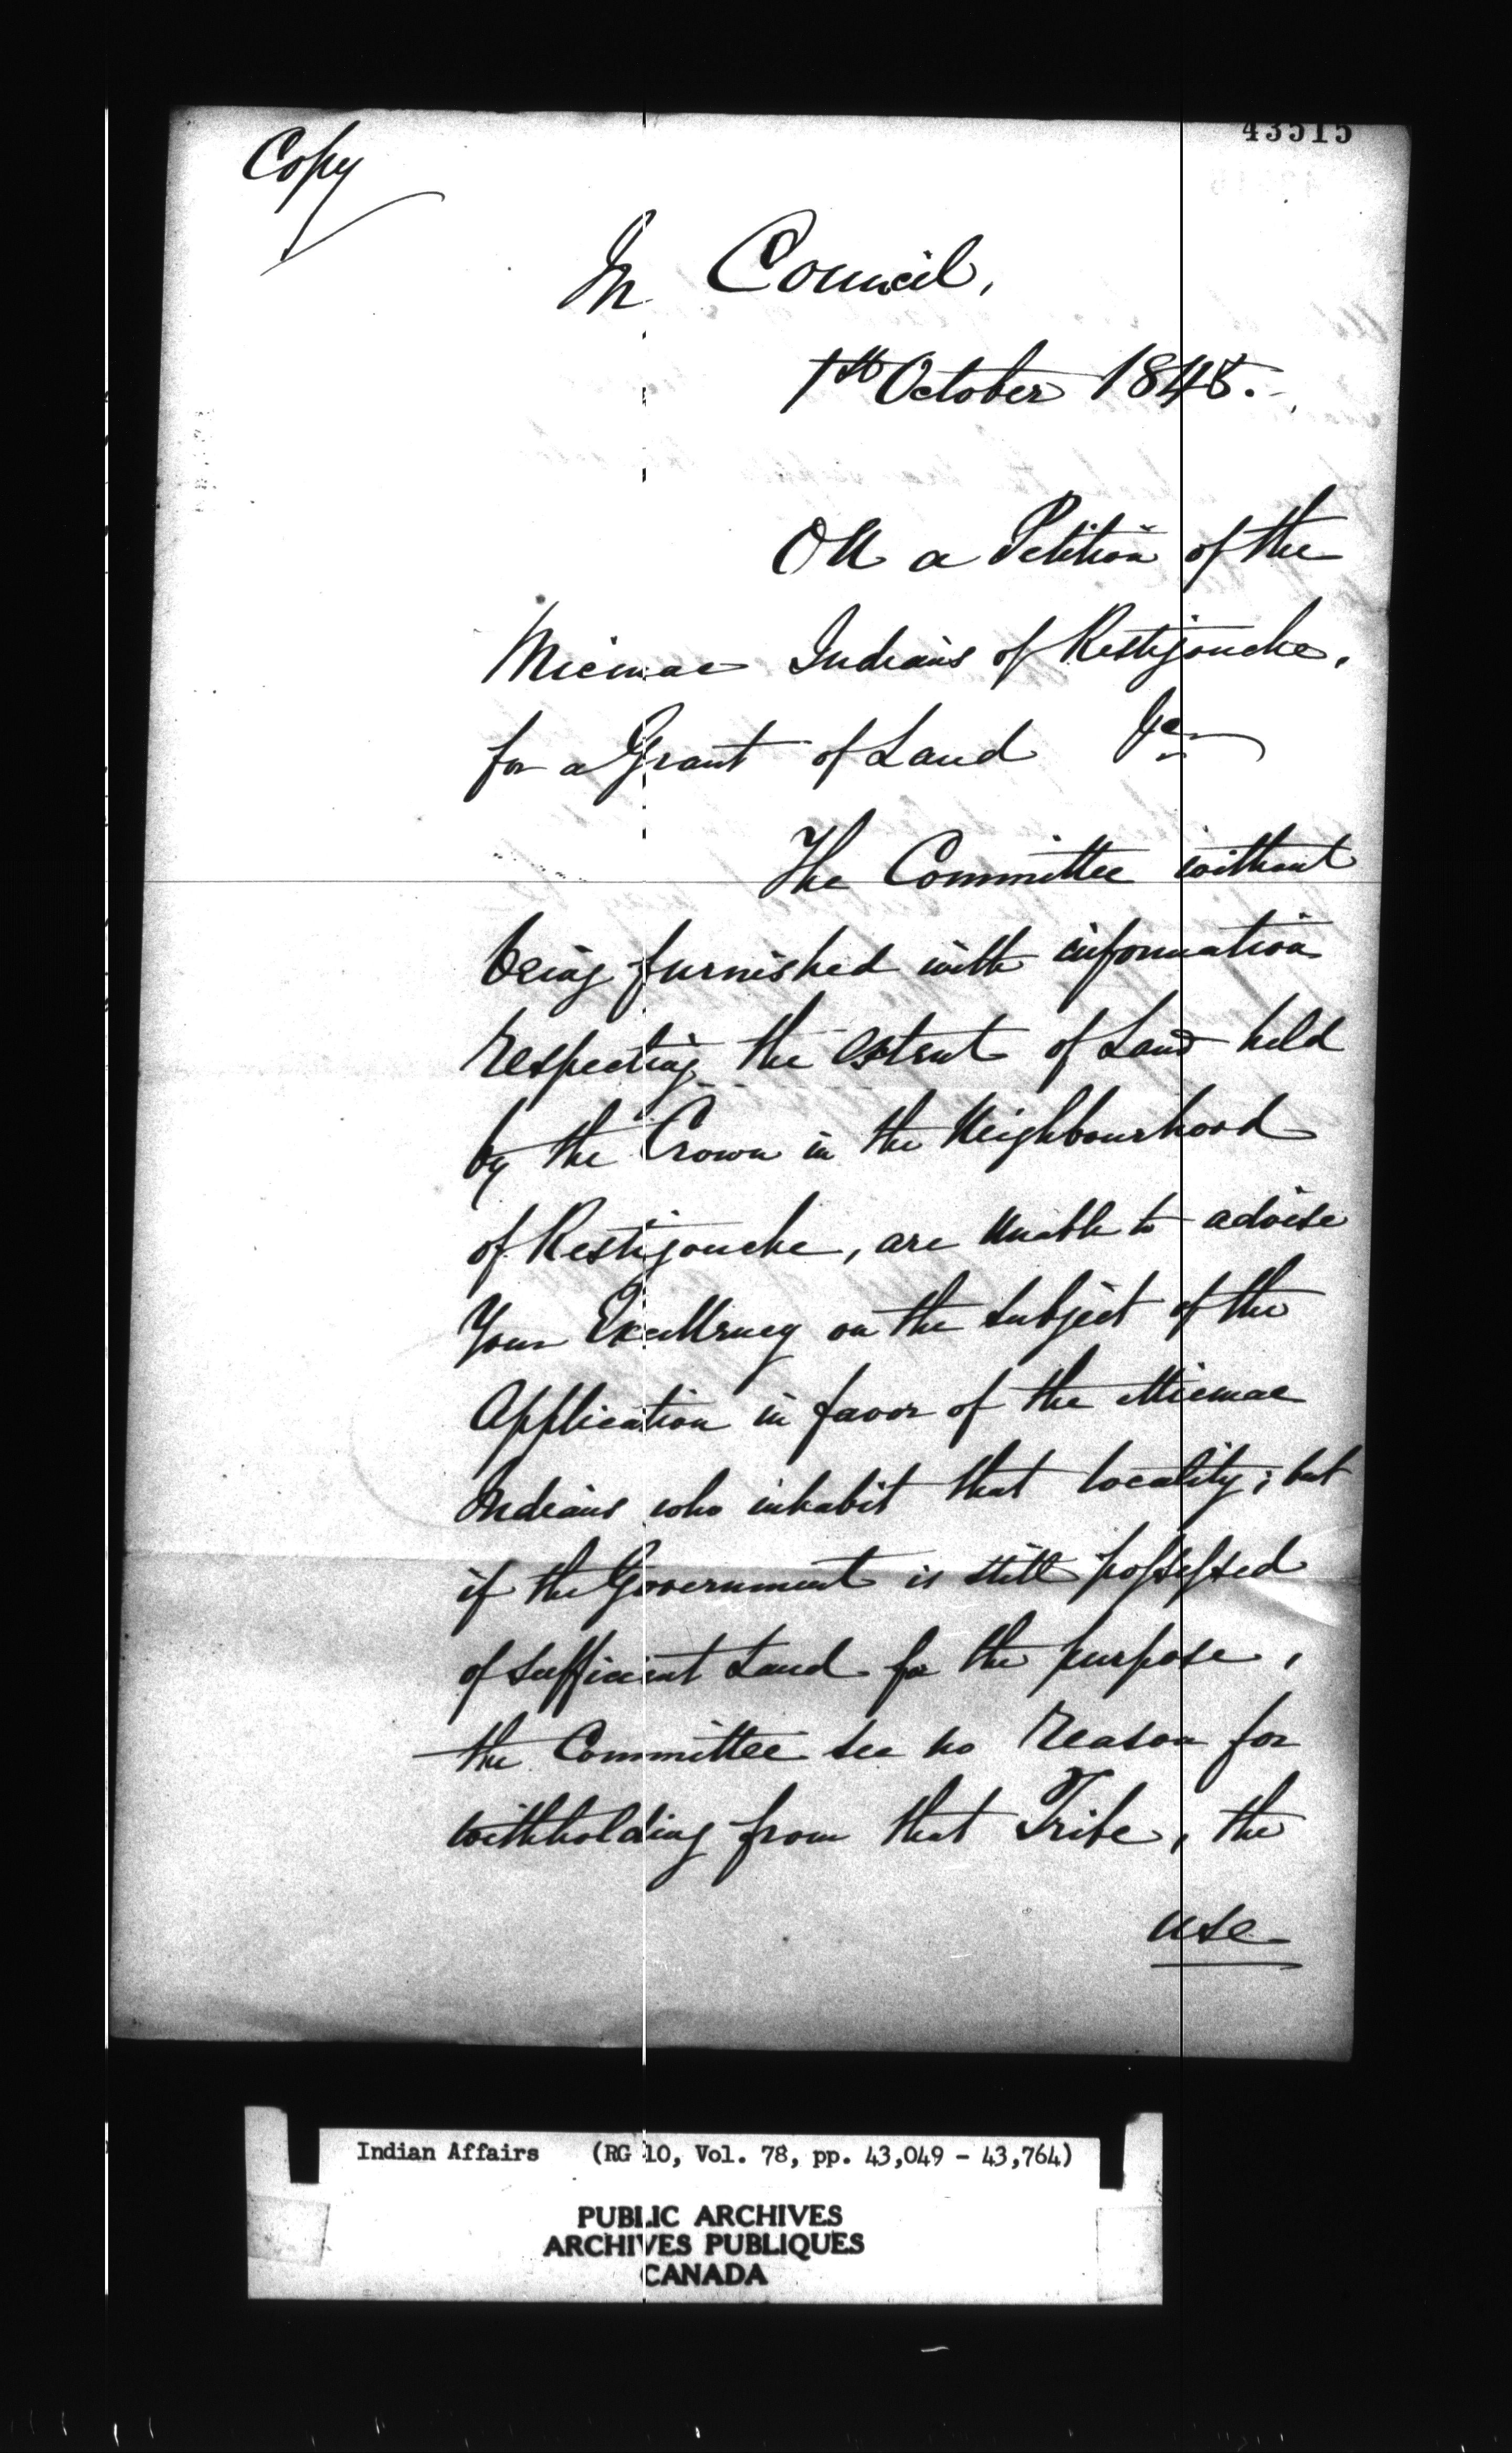 43515
Copy
In Council,
7th October 1845.
On a Petition of the
Micmac Indians of Restigouche,
for a Grant of Land &c
The Committee without
being furnished with information
respecting the extent of Land held
by the Crown in the Neighbourhood
of Restigouche, are unable to advise
Your Excellency on the subject of the
Application in favor of the Micmac
Indians who inhabit that locality; but
if the Government is still possessed
of sufficient Land for the purpose,
the Committee see no reason for
withholding from that Tribe, the
use
Indian Affairs (RG 10, Vol. 78, pp. 43,049 - 43,764)
PUBLIC ARCHIVES
ARCHIVES PUBLIQUES
CANADA